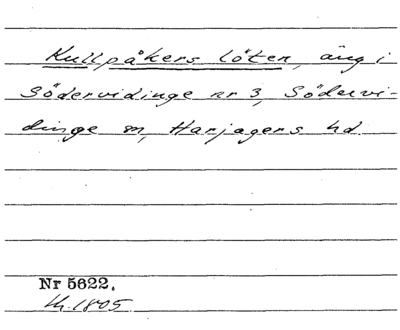 Kullpåkers löten, äng i
Södervidinge nr 3, Södervi-
dinge sn, Harjagers hd
Nr 5622.
1805.